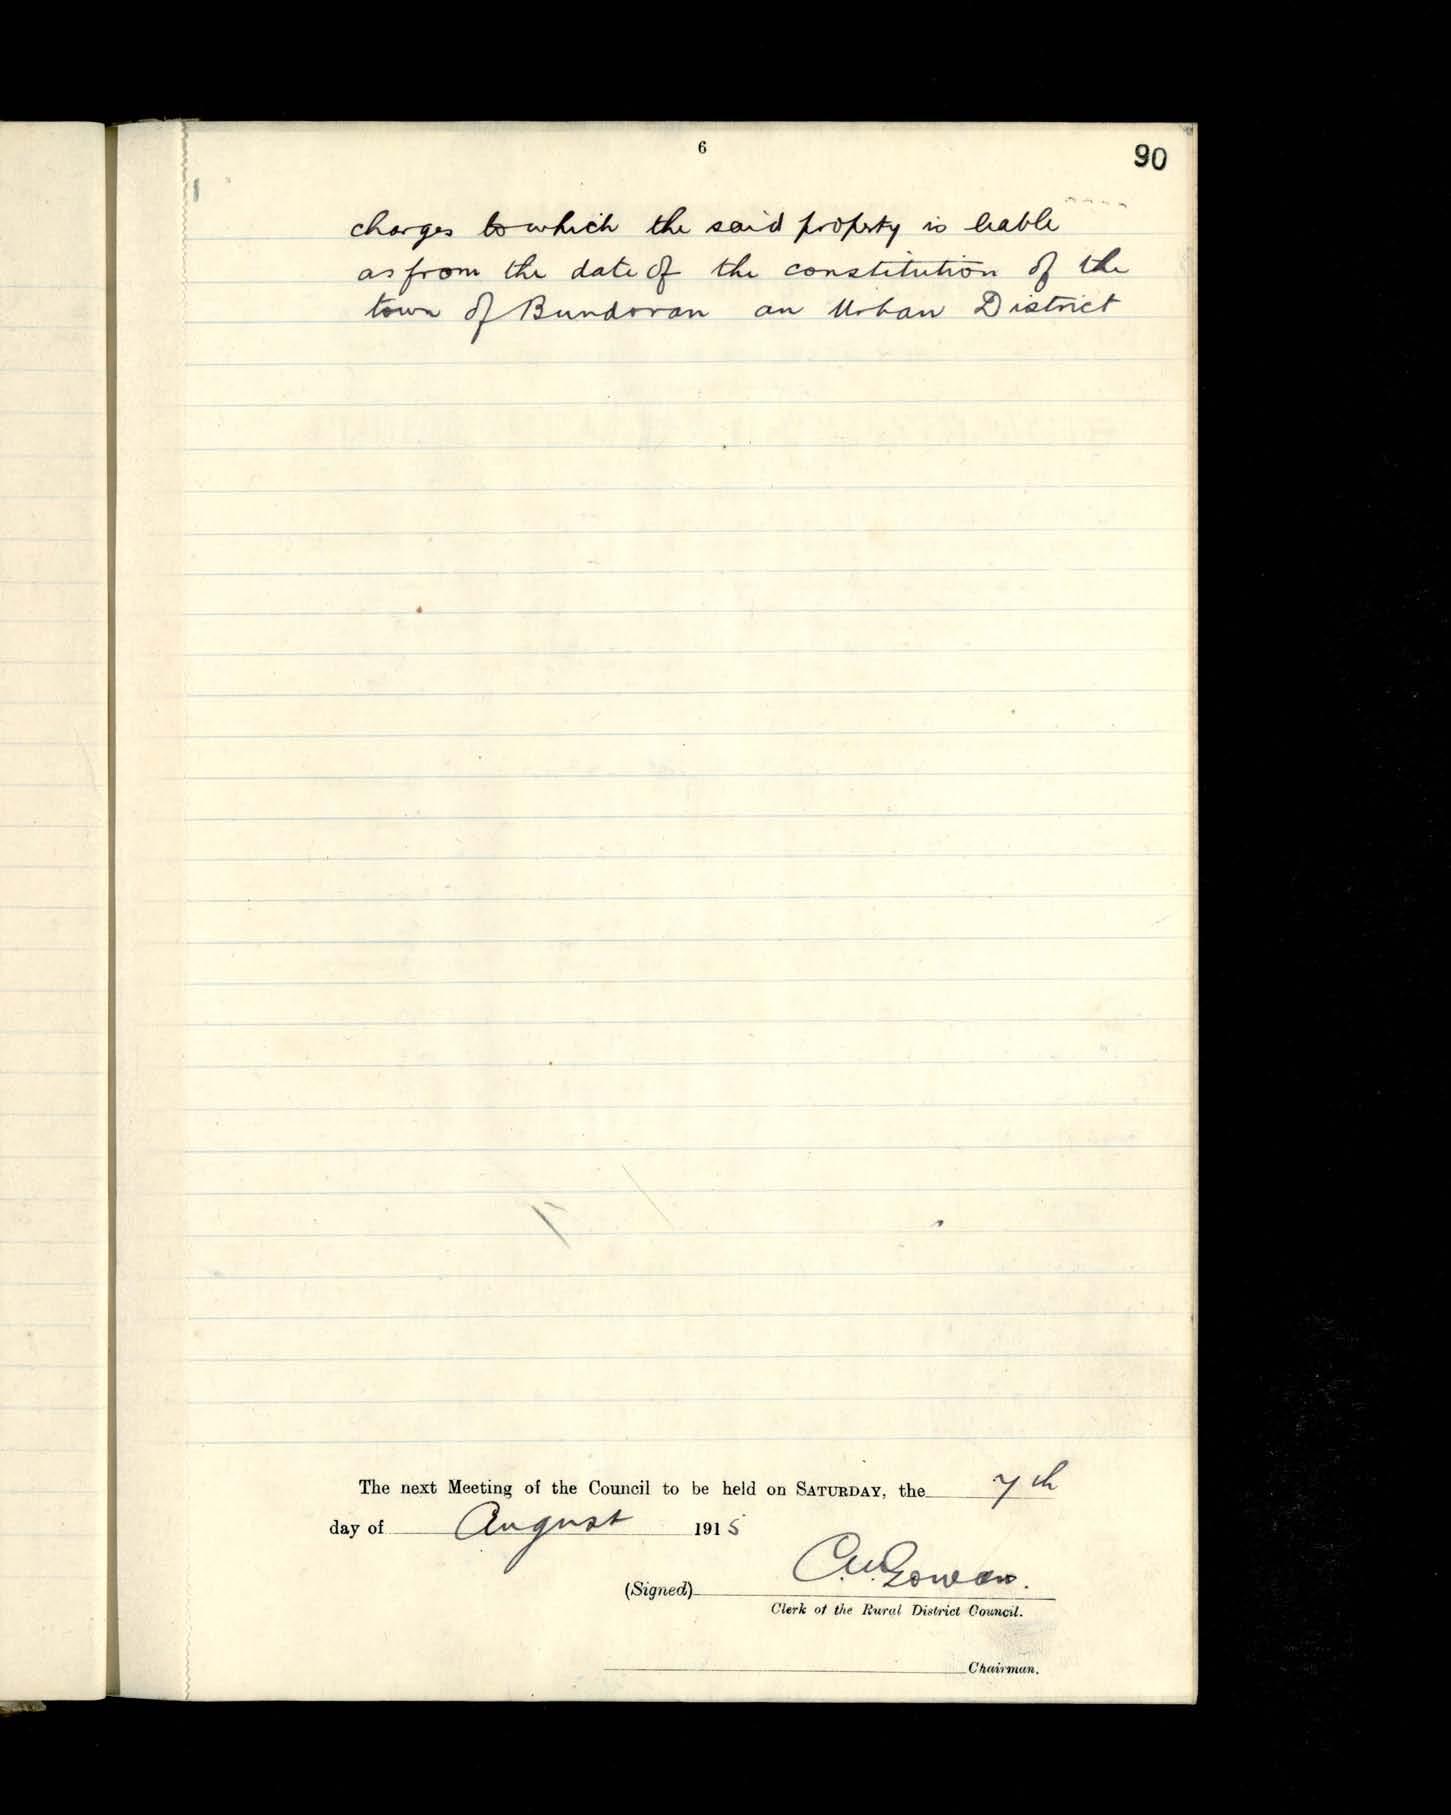 6
90
charges to which the said property is liable
as from the date of the constitution of the
town of Bundoran an Urban District
The next Meeting of the Council to be held on SATURDAY, the 7th
day of August 1915
(Signed)
Clerk of the Rural District Council.
Chairman.